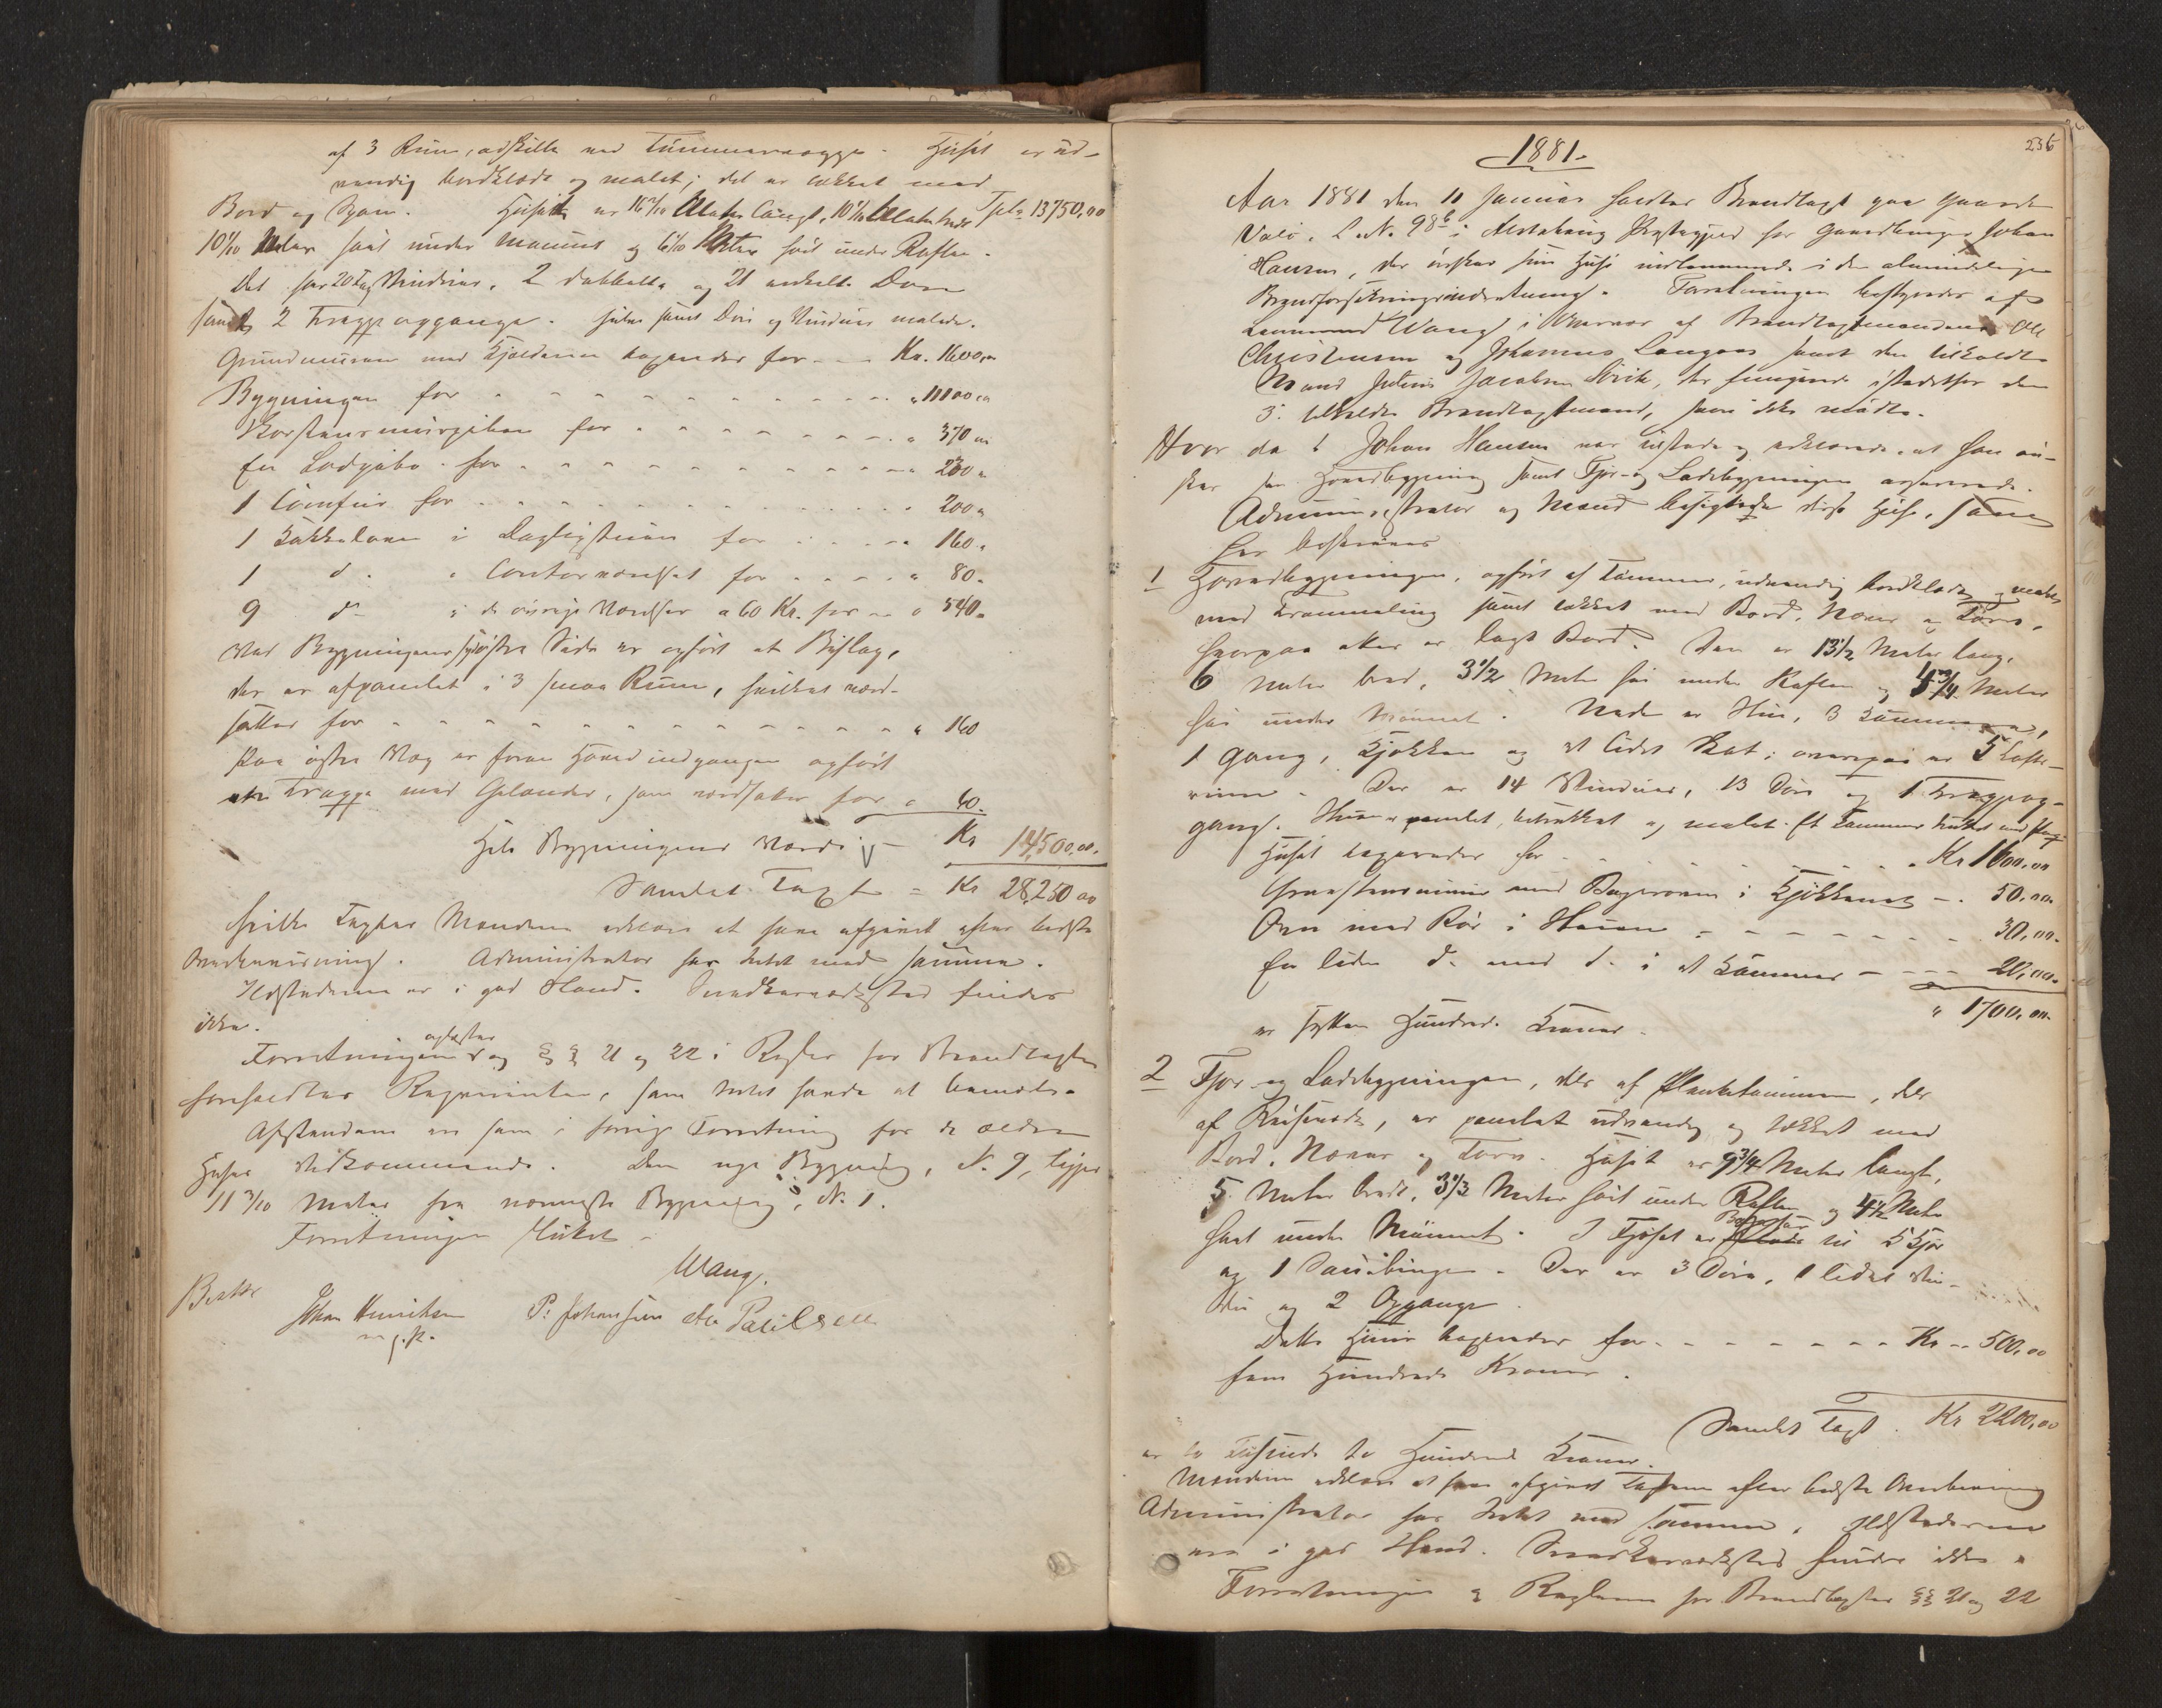 af 3 Rum, adskilte ved Tømmervægge. Huset er ud-
vendig bordklædt og malet; det er tækket med
Bord og Spaan. Huset er 16 Meter langt, Meter bredt Tpt. 13750,00
10 Meter høit under Mønnet og Meter høit under Raften.
Det har 20 Fag Vinduer, 2 dobbelte og 21 enkelte Døre
samt 2 Trappeopgange. Døre og Vinduer malede.
Grundmuren med Kjælderen taxeredes for - - - Kr. 1600,00
Bygningen for - - - " 11100,00
Skorstensmurpiben for - - - " 370,00
En for - - - " 230 "
1 Comfur for - - - 200 "
1 Kakkelovn i Dagligstuen for - - - " 160 "
1 do. " Contorværelset for - - - " 80 "
9 do i de øvrige Værelser a 60 Kr. for - - " 540 "
Ved Bygningens Side er opført et Bislag,
der er afpanelet i 3 smaa Rum, hvilket værd-
sættes for - - - " 160
Paa østre Væg er foran Hovedindgangen opført
en Trappe med Gelænder, som værdsættes for " 60.
Hele Bygningens Værdi - Kr 14,500,00.
Samlet Taxt = Kr 28,250 00
hvilke Taxter Mændene erklære at have afgivet efter bedste
Overbevisning. Administrator har Intet imod samme.
Ildstederne er i god Stand. Snedkerværksted findes
ikke.
oplæstes
Forretningen og §§ 21 og 22 i Regler for Brandtaxter
foreholdtes Rekvirenten, som Intet havde at bemærke.
Afstandene er som i forrige Forretning for de ældre
Huses Vedkommende. Den nye Bygning, No. 9, ligger
11 3/10 Meter fra nærmeste Bygning, No. 1.
Forretningen sluttet -
Wang.
Johan Henriksen P. Johansen Paulsen
m. f. P.
236
1881.
Aar 1881 den 11 Januar holdtes Brandtaxt paa Gaarden
L.No. 98b i Alstahaug Præstegjeld for Gaardbruger Johan
Hansen, der ønsker sine Huse indlemmede i den almindelige
Brandforsikringsindretning. Forretningen bestyredes af
Lensmand Wang i Overvær af Brandtaxtmændene Ole
Christensen og Johannes samt den tilkaldte
Mand Jacobsen, der fungerede istedetfor den
3. tilkaldte Brandtaxtmand, som ikke mødte.
Hvor da : Johan Hansen var tilstede og erklærede at han øn-
sker sin Hovedbygning samt Fjøs- og Ladebygningen assurerede.
Administrator og Mænd besigtigede disse Huse, som
her beskrives
1 Hovedbygningen, opført af Tømmer, udvendig bordklædt og malet
med Tranmaling samt tækket med Bord, Næver og Tørv,
hvorpaa atter er lagt Bord. Den er 13 1/2 Meter lang,
6 Meter bred, 3 1/2 Meter høi under Raften og Meter
høi under Mønnet. Nede er Stue, 3 Kammere,
1 Gang, Kjøkken og et lidet Skab; ovenpaa er 5 Lofts-
rum. Der er 14 Vinduer, 13 Døre og 1 Trappeop-
gang. Stuen panelet, betrukket og malet. Et Kammer
Huset taxeredes for - - - Kr 1600,00
Graastensmuur med Bagerovn i Kjøkkenet - . 50,00
Ovn med Rør i Stuen - - - 30,00.
En liden do. med do. i et Kammer - - - 20,00.
" 1700,00
er sytten Hundrede Kroner.
2 Fjøs- og Ladebygningen, dels af Planketømmer, dels
af Reisværk, er panelet udvendig og tækket med
Bord, Næver og Tørv. Huset er 9 3/4 Meter langt,
5 Meter bredt, 3 1/3 Meter høit under Raften og 4 1/2 Meter
høit under Mønnet. I Fjøset er til 5 Kjør
og 1 Sauebinge. Der er 3 Døre, 1 lidet Vin-
due og 2 Opgange.
Dette Huus taxeredes for - - - Kr -- 500,00
fem Hundrede Kroner.
Samlet Taxt. Kr 2200,00
er to Tusinde to Hundrede Kroner.
Mændene erklære at have afgivet Taxterne efter bedste Overbevisning
Administrator har Intet imod samme. Ildstederne
ere i god Stand. Snedkerværksted findes ikke.
Forretningen & Reglerne for Brandtaxter §§ 21 og 22